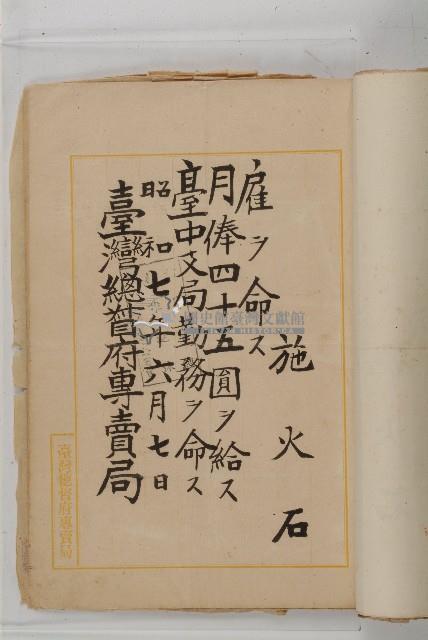 施火石
雇ヲ命ス
月俸四十五圓ヲ給ス
臺中支局勤務ヲ命ス
昭和七年六月七日
臺灣總督府專賣局
臺灣總督府專賣局
國史館臺灣文獻館